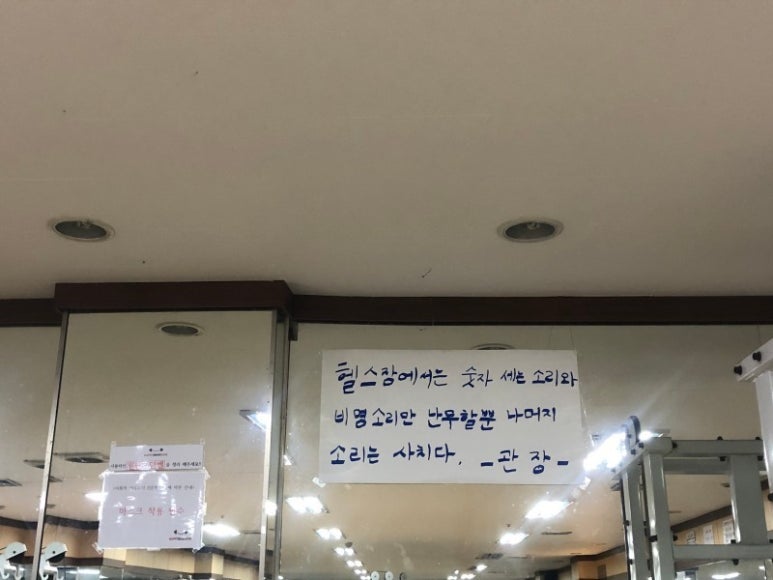 헬스장에서는 숫자 세는 소리와
비명소리만 난무할뿐 나머지
소리는 사치다. -관장-
마스크 착용 필수